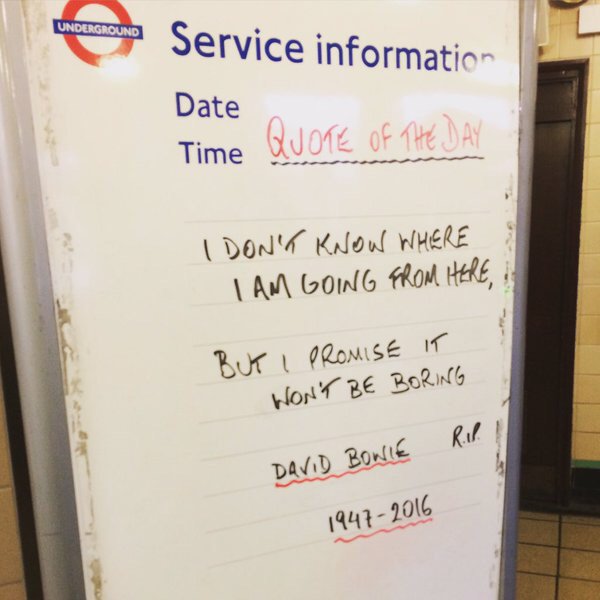 UNDERGROUND
Service information
Date
Time
QUOTE OF THE DAY
I DON'T KNOW WHERE
I AM GOING FROM HERE,
BUT I PROMISE IT
WON'T BE BORING
DAVID BOWIE R.I.P.
1947-2016